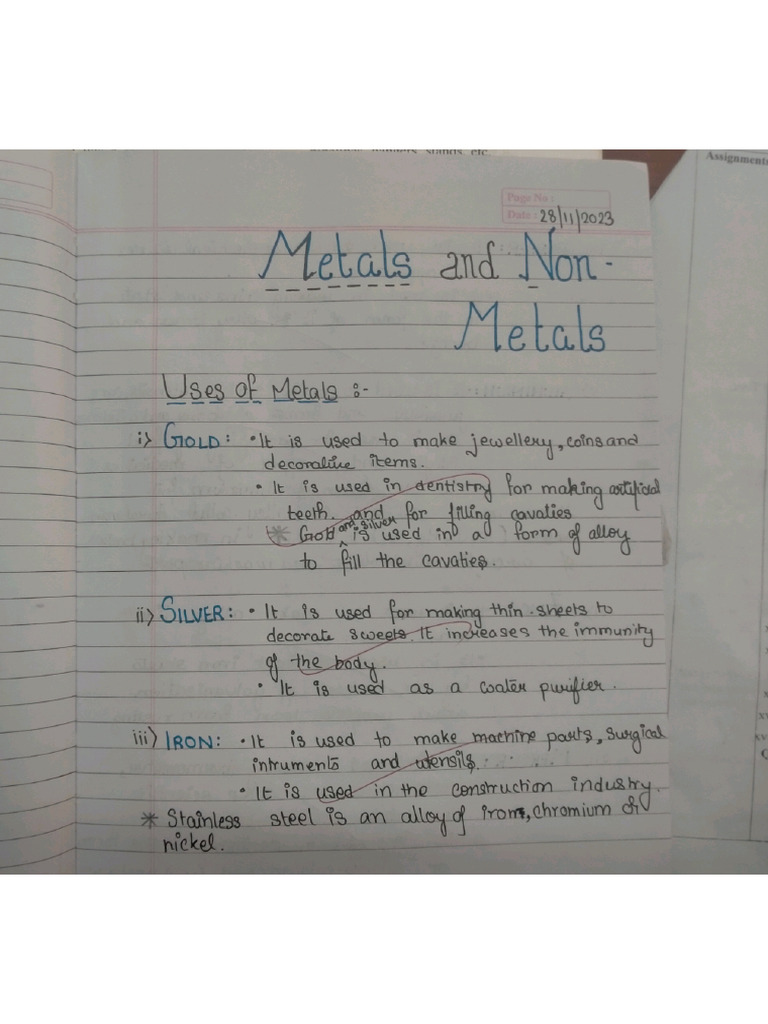 Assignments
Page No :
Date : 28/11/2023
Metals and Non-
Metals
Uses of Metals :-
i) GOLD: • It is used to make jewellery, coins and
decorative items.
• It is used in dentistry for making artificial
teeth and for filling cavaties
* Gold and silver is used in a form of alloy
to fill the cavaties.
ii) SILVER: • It is used for making thin sheets to
decorate sweets. It increases the immunity
of the body.
• It is used as a water purifier.
iii) IRON: • It is used to make machine parts, surgical
intruments and utensils.
• It is used in the construction industry.
* Stainless steel is an alloy of iron, chromium &
nickel.